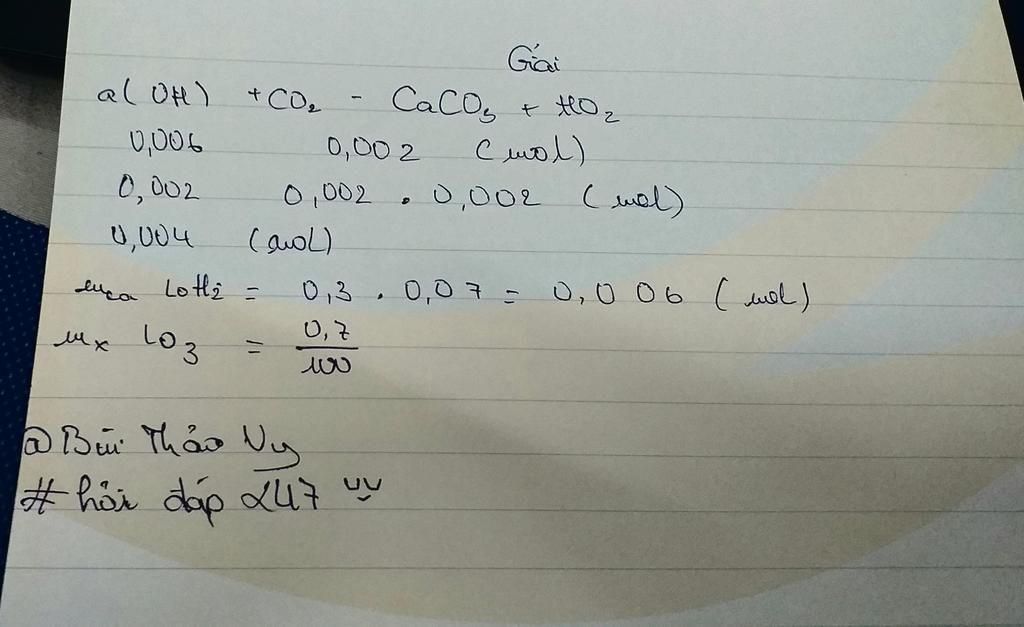 Giải
a(OH) + CO₂ - CaCO₃ + HO₂
0,006 0,002 (mol)
0,002 0,002 . 0,002 (mol)
0,004 (mol)
0,3 . 0,07 = 0,006 (mol)
= 0,7/100
@ Bùi Thảo Vy
# hỏi đáp 247